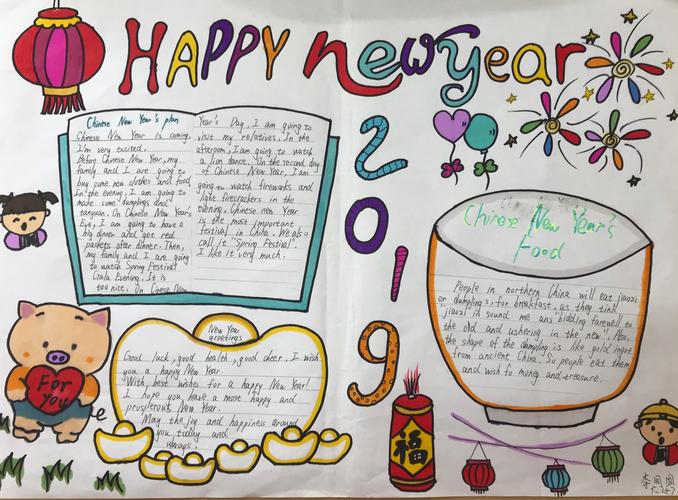 HAPPY newyear
Chinese New Year's plan
Chinese New Year is coming.
I'm very excited.
Before Chinese New Year, my
family and I are going to
buy some new clothes and food.
In the evening, I am going to
make some dumplings and
tangyuan. On Chinese New Year's
Eye, I am going to have a
big dinner and get red
packets after dinner. Then,
my family and I are going
to watch Spring Festival
Gala Evening. It is
too nice. On Cinese New
Year's Day, I am going to
visit my relatives. In the
afternoon, I am going to watch
a lion dance. On the second day
of Chinese New Year, I am
going to watch fireworks and
light firecrackers in the
evening. Chinese new Year
is the most important
festival in China. We also
call it "Spring Festival".
I like it very much.
2019
Chinese New Year's
Food
People in northern China will eat jiaozi
or dumplings, for breakfast, as they tink
"jiaozi" in sound me ans "bidding farewell to
the old and ushering in the new". Also,
the shape of the dumpling is like gold ingot
from ancient China. So people eat them
and wish fo money and treasure.
New Year
greetings
Good luck, good health, good cheer. I wish
you a happy New Year.
With best wishes for a happy New Year!
I hope you have a most happy and
prosperous New Year.
May the joy and happiness around
you today and
always.
For
you
福